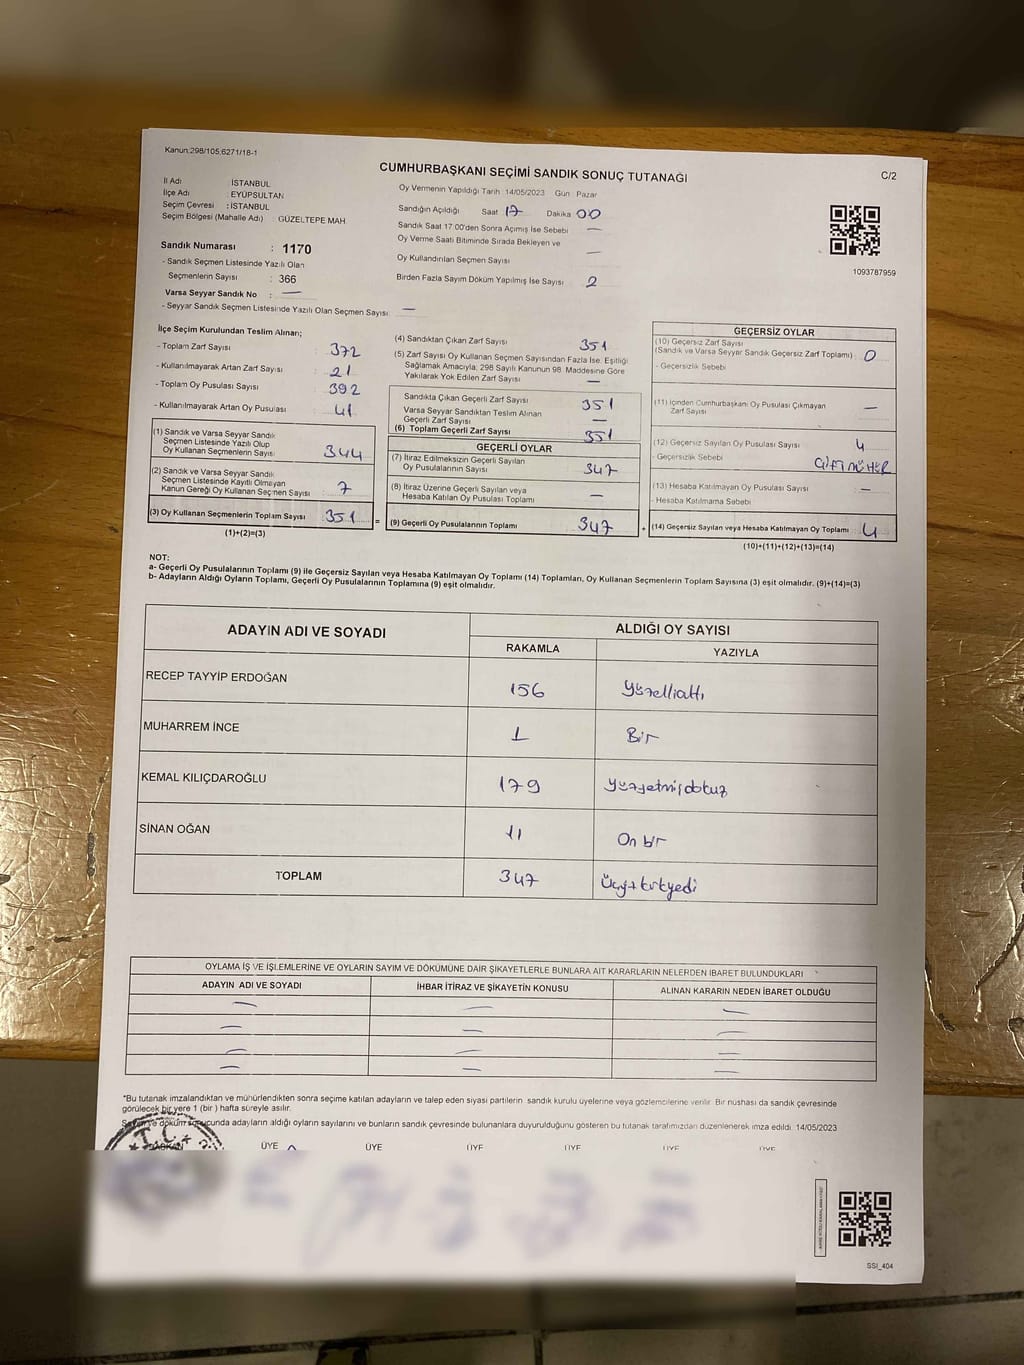 Kanun:298/105,6271/18-1
CUMHURBAŞKANI SEÇİMİ SANDIK SONUÇ TUTANAĞI
C/2
İl Adı : İSTANBUL
İlçe Adı : EYÜPSULTAN
Seçim Çevresi : İSTANBUL
Seçim Bölgesi (Mahalle Adı) : GÜZELTEPE MAH.
Sandık Numarası : 1170
- Sandık Seçmen Listesinde Yazılı Olan
Seçmenlerin Sayısı : 366
Varsa Seyyar Sandık No : —
- Seyyar Sandık Seçmen Listesinde Yazılı Olan Seçmen Sayısı: —
Oy Vermenin Yapıldığı Tarih 14/05/2023 Gün Pazar
Sandığın Açıldığı Saat 17 Dakika 00
Sandık Saat 17:00'den Sonra Açımış İse Sebebi —
Oy Verme Saati Bitiminde Sırada Bekleyen ve
Oy Kullandırılan Seçmen Sayısı —
Birden Fazla Sayım Döküm Yapılmış İse Sayısı 2
1093787959
İlçe Seçim Kurulundan Teslim Alınan;
- Toplam Zarf Sayısı : 372
- Kullanılmayarak Artan Zarf Sayısı : 21
- Toplam Oy Pusulası Sayısı : 392
- Kullanılmayarak Artan Oy Pusulası : 41
(1) Sandık ve Varsa Seyyar Sandık
Seçmen Listesinde Yazılı Olup
Oy Kullanan Seçmenlerin Sayısı : 344
(2) Sandık ve Varsa Seyyar Sandık
Seçmen Listesinde Kayıtlı Olmayan
Kanun Gereği Oy Kullanan Seçmen Sayısı : 7
(3) Oy Kullanan Seçmenlerin Toplam Sayısı : 351
(1)+(2)=(3)
=
(4) Sandıktan Çıkan Zarf Sayısı 351
(5) Zarf Sayısı Oy Kullanan Seçmen Sayısından Fazla İse, Eşitliği
Sağlamak Amacıyla; 298 Sayılı Kanunun 98. Maddesine Göre
Yakılarak Yok Edilen Zarf Sayısı —
Sandıkta Çıkan Geçerli Zarf Sayısı 351
Varsa Seyyar Sandıktan Teslim Alınan
Geçerli Zarf Sayısı —
(6) Toplam Geçerli Zarf Sayısı 351
GEÇERLİ OYLAR
(7) İtiraz Edilmeksizin Geçerli Sayılan
Oy Pusulalarının Sayısı 347
(8) İtiraz Üzerine Geçerli Sayılan veya
Hesaba Katılan Oy Pusulası Toplamı —
(9) Geçerli Oy Pusulalarının Toplamı 347
+
GEÇERSİZ OYLAR
(10) Geçersiz Zarf Sayısı
(Sandık ve Varsa Seyyar Sandık Geçersiz Zarf Toplamı) : 0
- Geçersizlik Sebebi
(11) İçinden Cumhurbaşkanı Oy Pusulası Çıkmayan
Zarf Sayısı —
(12) Geçersiz Sayılan Oy Pusulası Sayısı : 4
- Geçersizlik Sebebi ÇİFT MÜHÜR
(13) Hesaba Katılmayan Oy Pusulası Sayısı : —
- Hesaba Katılmama Sebebi
(14) Geçersiz Sayılan veya Hesaba Katılmayan Oy Toplamı : 4
(10)+(11)+(12)+(13)=(14)
NOT:
a- Geçerli Oy Pusulalarının Toplamı (9) ile Geçersiz Sayılan veya Hesaba Katılmayan Oy Toplamı (14) Toplamları, Oy Kullanan Seçmenlerin Toplam Sayısına (3) eşit olmalıdır. (9)+(14)=(3)
b- Adayların Aldığı Oyların Toplamı, Geçerli Oy Pusulalarının Toplamına (9) eşit olmalıdır.
ADAYIN ADI VE SOYADI
ALDIĞI OY SAYISI
RAKAMLA YAZIYLA
RECEP TAYYİP ERDOĞAN 156 Yüzelliałtı
MUHARREM İNCE 1 Bir
KEMAL KILIÇDAROĞLU 179 Yüzyetmişdokuz
SİNAN OĞAN 11 On bir
TOPLAM 347 Üçyüzkırkyedi
OYLAMA İŞ VE İŞLEMLERİNE VE OYLARIN SAYIM VE DÖKÜMÜNE DAİR ŞİKAYETLERLE BUNLARA AİT KARARLARIN NELERDEN İBARET BULUNDUKLARI
ADAYIN ADI VE SOYADI İHBAR İTİRAZ VE ŞİKAYETİN KONUSU ALINAN KARARIN NEDEN İBARET OLDUĞU
— — —
— — —
— — —
— — —
*Bu tutanak imzalandıktan ve mühürlendikten sonra seçime katılan adayların ve talep eden siyasi partilerin, sandık kurulu üyelerine veya gözlemcilerine verilir. Bir nüshası da sandık çevresinde
görülecek bir yere 1 (bir) hafta süreyle asılır.
Sayım ve döküm sonucunda adayların aldığı oyların sayılarını ve bunların sandık çevresinde bulunanlara duyurulduğunu gösteren bu tutanak tarafımızdan düzenlenerek imza edildi. 14/05/2023
T.C.
BAŞKAN ÜYE ÜYE ÜYE ÜYE ÜYE ÜYE
SSI_404